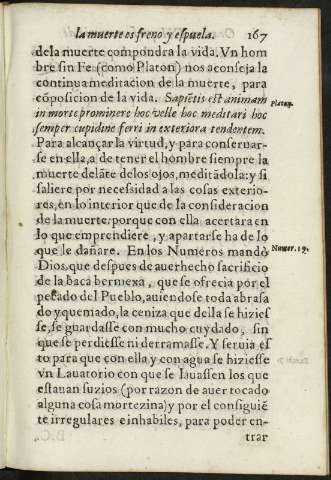 la muerte es freno y espuela. 167
de la muerte compondra la vida. Vn hom
bre sin Fe (como Platon) nos aconseja la
continua meditacion de la muerte, para
cõposicion de la vida. Sapiẽtis est animam
in morte prominere hoc velle hoc meditari hoc
semper cupidine ferri in exteriora tendentem.
Platon.
Para alcançar la virtud, y para conseruar-
se en ella, a de tener el hombre siempre la
muerte delãte de los ojos, meditãdola: y si
saliere por necessidad a las cosas exterio-
res, en lo interior que de la consideracion
de la muerte: porque con ella acertara en
lo que emprendiere, y apartarse ha de lo
que le dañare. En los Numeros mandò
Numer. 19.
Dios, que despues de auer hecho sacrificio
de la baca bermexa, que se ofrecia por el
pecado del Pueblo, auiendose toda abrasa
do y quemado, la ceniza que della se hizies
se, se guardasse con mucho cuydado, sin
que se perdiesse ni derramasse. Y seruia es
to para que con ella y con agua se hiziesse
vn Lauatorio con que se lauassen los que
estauan suzios (por razon de auer tocado
alguna cosa mortezina) y por el consiguiẽ
te irregulares e inhabiles, para poder en-
trar